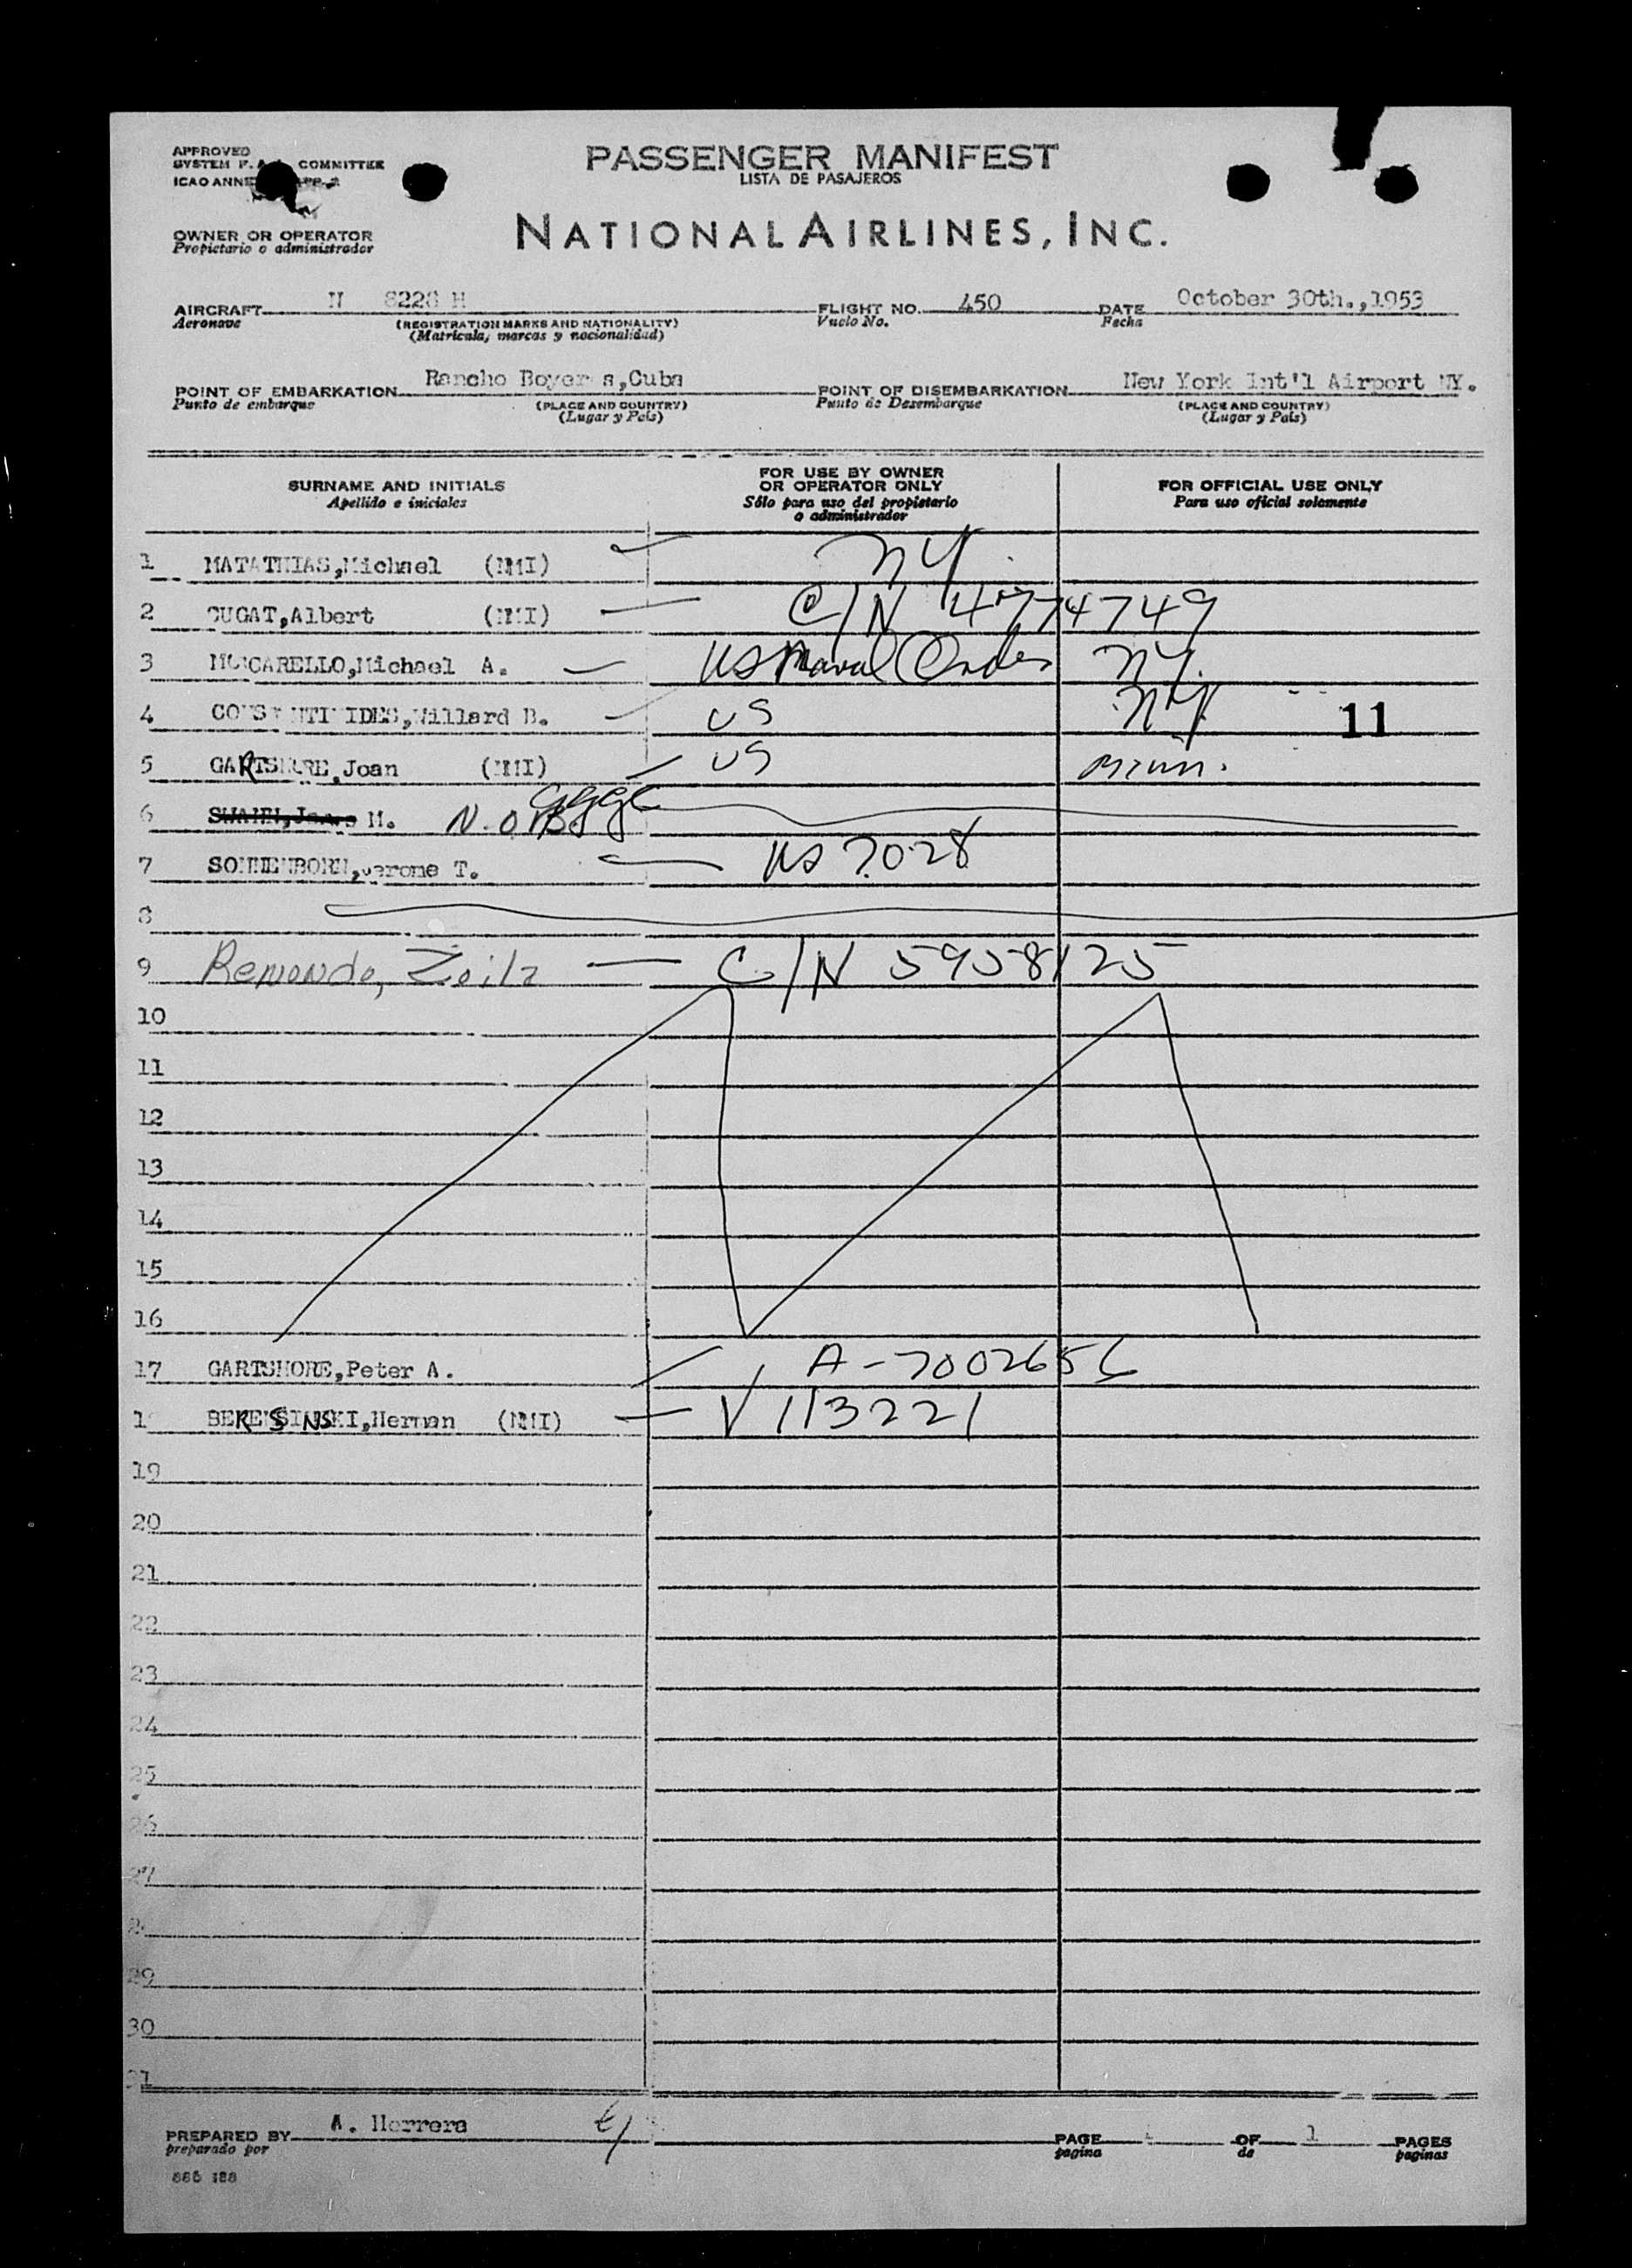 APPROVED
SYSTEM COMMITTEE
ICAO
PASSENGER MANIFEST
LISTA DE PASAJEROS
OWNER OR OPERATOR
Propietario o administrador
NATIONAL AIRLINES, INC.
AIRCRAFT N 8228 H FLIGHT NO. 450 DATE October 30th.,1953
Aeronave (REGISTRATION MARKS AND NATIONALITY) Vuelo No. Fecha
(Matricula, marcas y nacionalidad)
POINT OF EMBARKATION Rancho Boyer s,Cuba POINT OF DISEMBARKATION New York Int'l Airport NY.
Punto de embarque (PLACE AND COUNTRY) Punto de Desembarque (PLACE AND COUNTRY)
(Lugar y País) (Lugar y País)
SURNAME AND INITIALS FOR USE BY OWNER OR OPERATOR ONLY FOR OFFICIAL USE ONLY
Apellido e iniciales Sólo para uso del propietario o administrador Para uso oficial solamente
1 MATATHIAS,Michael (NMI) NY.
2 CUGAT,Albert (NMI) C/N 4774749
3 Michael A. US Naval Orders NY.
4 Willard B. US NY. 11
5 GARTSHORE,Joan (NMI) US
6 M. N.O.B.
7 SONNENBORN,Jerome T. US 7028
8
9 Zoila C/N 5958125
10
11
12
13
14
15
16
17 GARTSHORE,Peter A. A-7002656
1 BERENSINSKI,Herman (NMI) V 113221
19
20
21
22
23
24
25
26
27
2
29
30
31
PREPARED BY A. Herrera PAGE OF 1 PAGES
preparado por pagina de paginas